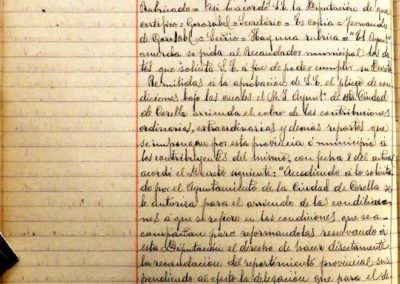 rubricado = Así lo acordó S.E. la Diputación de que
certifico = Gorosabel = Secretario = Es copia = Fernando
de Gorosabel = Secrio = Hay una rubrica = "El Aymto
acuerda se pida al Recaudador municipal los da
tos que solicita S.E. á fin de poder cumplir su Decreto
Remitidas á la aprobacion de S.E. el pliego de con
diciones bajo las cuales el M.I. Aymto de esta Ciudad
de Corella arrienda el cobro de las contribuciones
ordinarias, extraordinarias y demas repartos que
se impongan por esta provincia ó municipio á
los contribuyentes del mismo, con fecha 8 del actual
acordó el Decreto siguiente: "Accediendo á lo solicita
do por el Ayuntamiento de la Ciudad de Corella se
le autoriza para el arriendo de las contribuciones
á que se refiere en las condiciones que se a-
compañan pero reformandolas reservando á
esta Diputacion el derecho de hacer directamente
la recaudacion del repartimiento provincial sus
pendiendo al efecto la delegacion que para el de